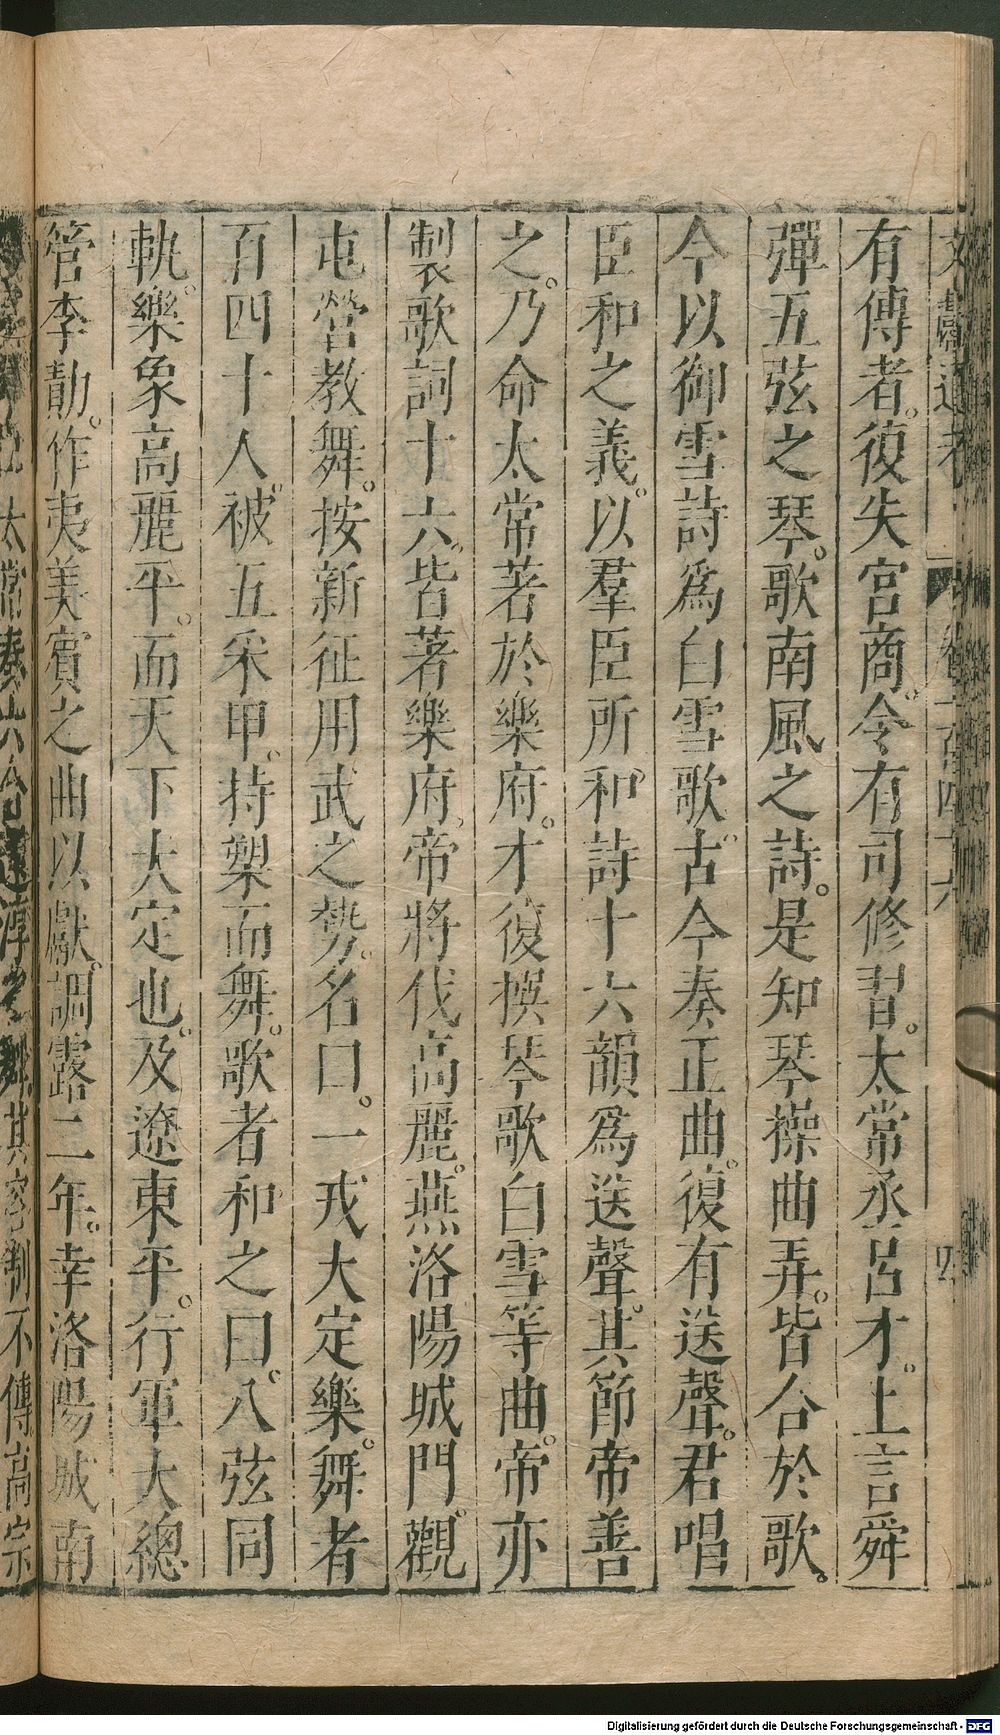 文獻通考 卷一百四十六 四
有傳者復失宮商令有司修習太常丞呂才上言舜
彈五弦之琴歌南風之詩是知琴操曲弄皆合於歌
今以御雪詩爲白雪歌古今奏正曲復有送聲君唱
臣和之義以羣臣所和詩十六韻爲送聲其節帝善
之乃命太常著於樂府才復撰琴歌白雪等曲帝亦
製歌詞十六皆著樂府帝將伐高麗燕洛陽城門觀
屯營教舞按新征用武之勢名曰一戎大定樂舞者
百四十人被五采甲持槊而舞歌者和之曰八弦同
軌樂象高麗平而天下大定也及遼東平行軍大總
管李勣作夷美賓之曲以獻調露二年幸洛陽城南
太常奏六合還淳之舞其容制不傳高宗
Digitalisierung gefördert durch die Deutsche Forschungsgemeinschaft - DFG